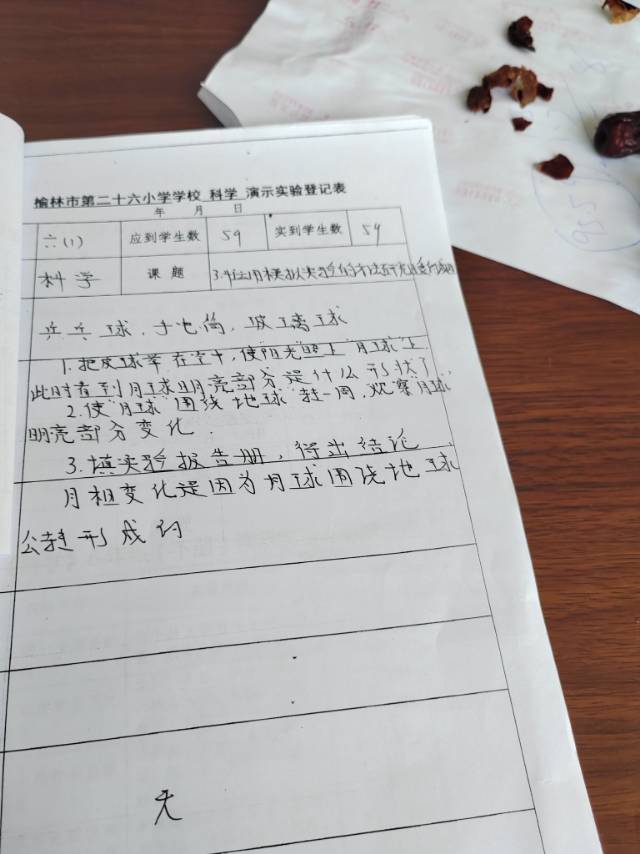 榆林市第二十六小学学校 科学 演示实验登记表
年 月 日
六(1) 应到学生数 59 实到学生数 59
科学 课题 3.
乒乓球，手电筒，玻璃球
1.把皮球举在空中，使阳光照上"月球"上
此时看到月球明亮部分是什么形状？
2.使"月球"围绕"地球"转一周，观察"月球"
明亮部分变化.
3.填实验报告册，得出结论.
月相变化是因为月球围绕地球
公转形成的
无